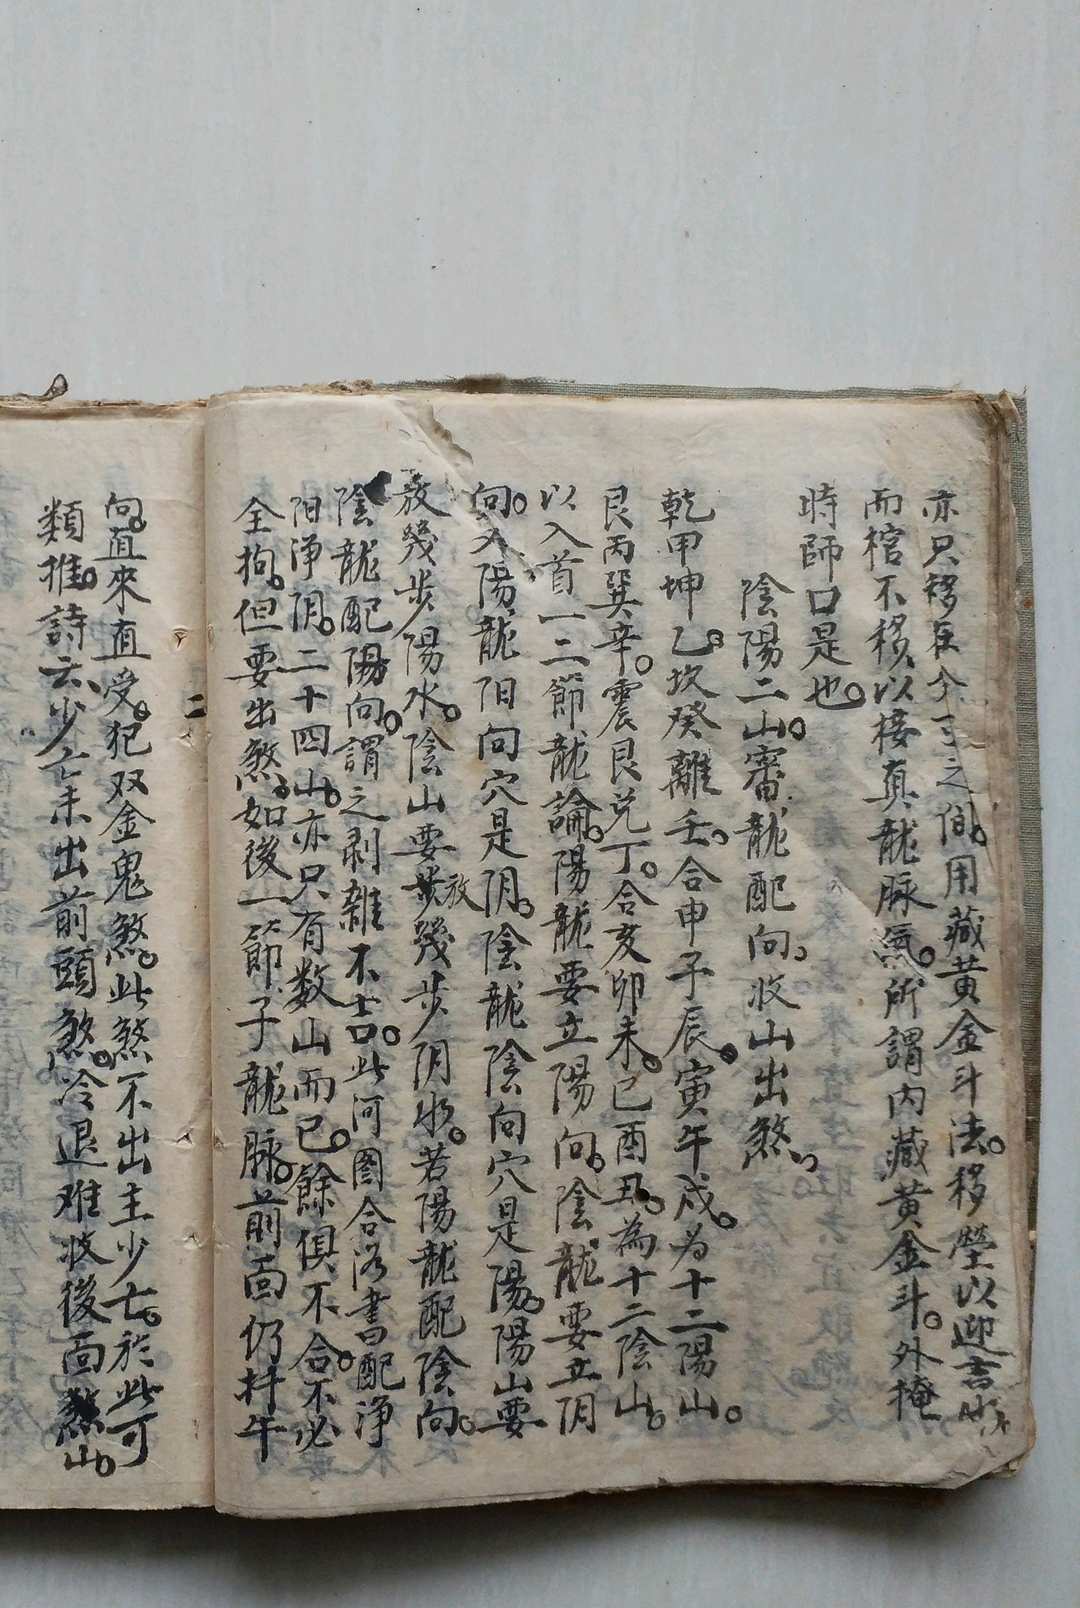 亦只移在分寸之间。用藏黄金斗法。移塋以迎吉水
而棺不移以接真龍脉氣。所謂内藏黄金斗。外掩
時師口是也。
陰陽二山。審龍配向。收山出煞。
乾甲坤乙。坎癸離壬。合申子辰。寅午戌。为十二陽山。
艮丙巽辛。震艮兑丁。合亥卯未。巳酉丑。為十二陰山。
以入首一二節龍論。陽龍要立陽向。陰龍要立阴
向。又陽龍阳向穴是阴。陰龍陰向穴是陽。陽山要
放幾步陽水。陰山要放幾步阴水。若陽龍配陰向。
陰龍配陽向。謂之剥雜不吉。此河圖合洛書配净
阳净阴。二十四山。亦只有数山而已。餘俱不合。不必
全拘。但要出煞。如後一節子龍脉。前面仍扦午
向。直來直受。犯双金鬼煞。此煞不出主少亡。於此可
類推。詩云。少亡未出前頭煞。冷退难收後面山。
二